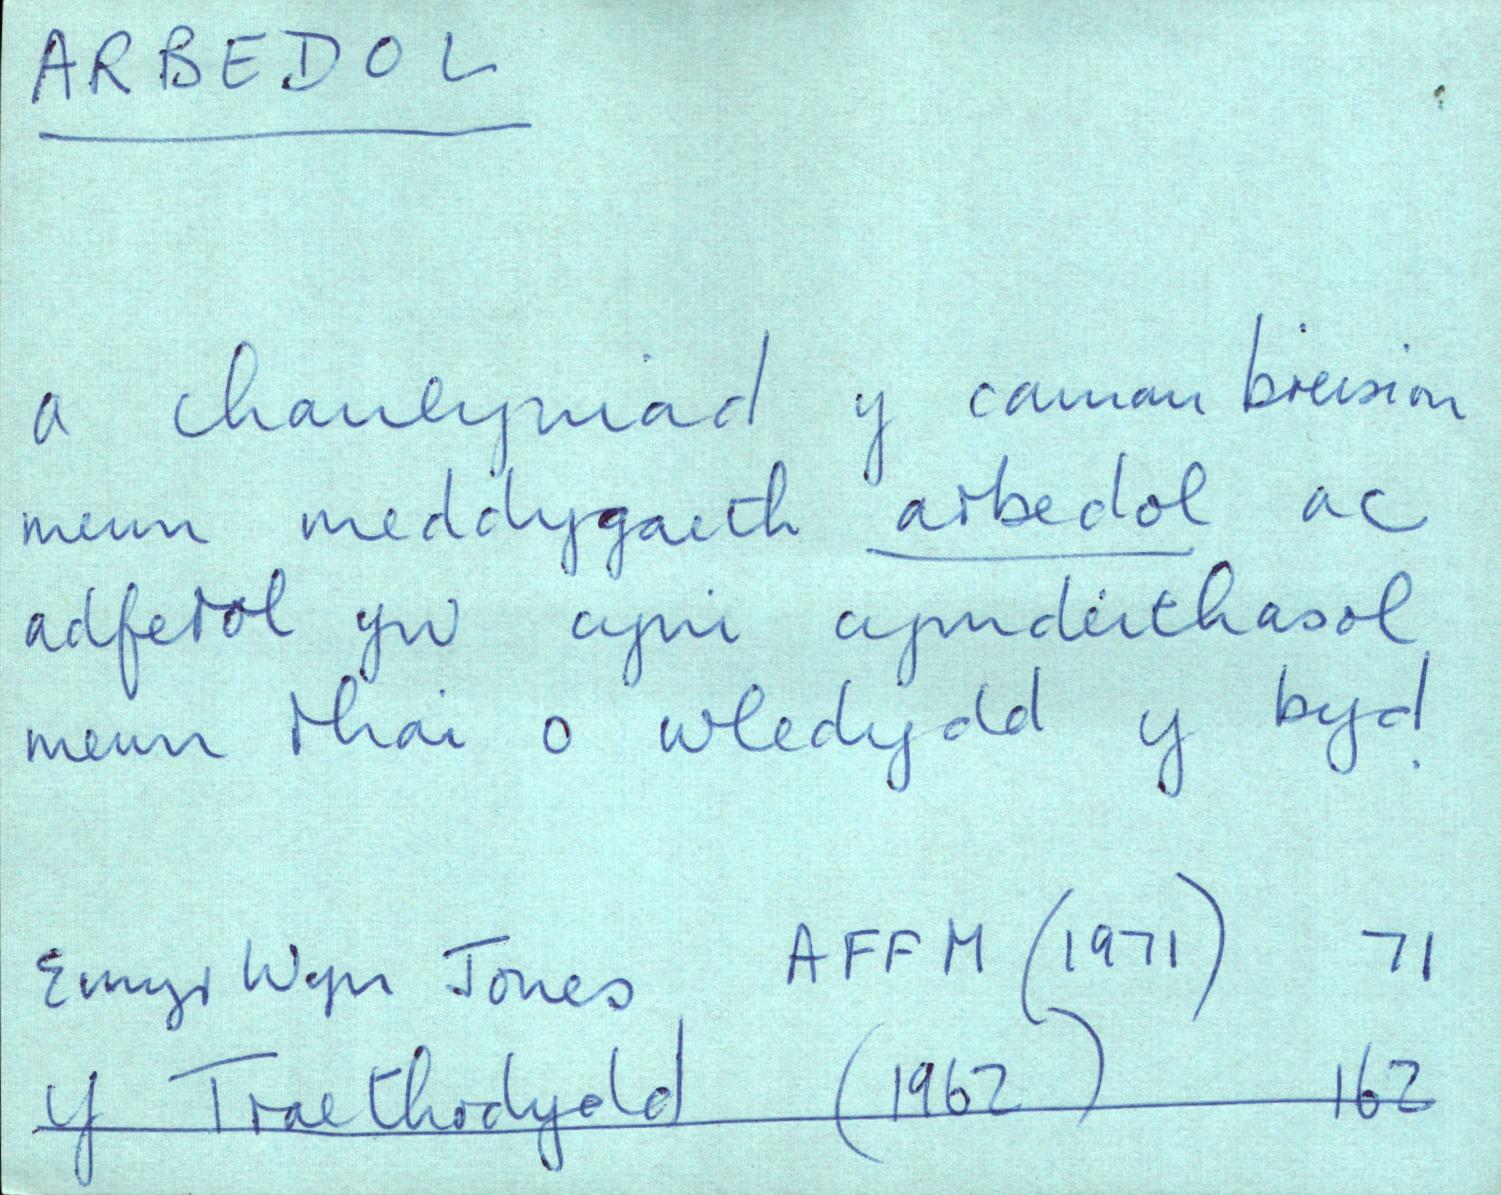 ARBEDOL
a chanlyniad y camau breision
mewn meddygaeth arbedol ac
adferol yw cyni cymdeithasol
mewn rhai o wledydd y byd!
Emyr Wyn Jones AFFM (1971) 71
Y Traethodydd (1962) 162